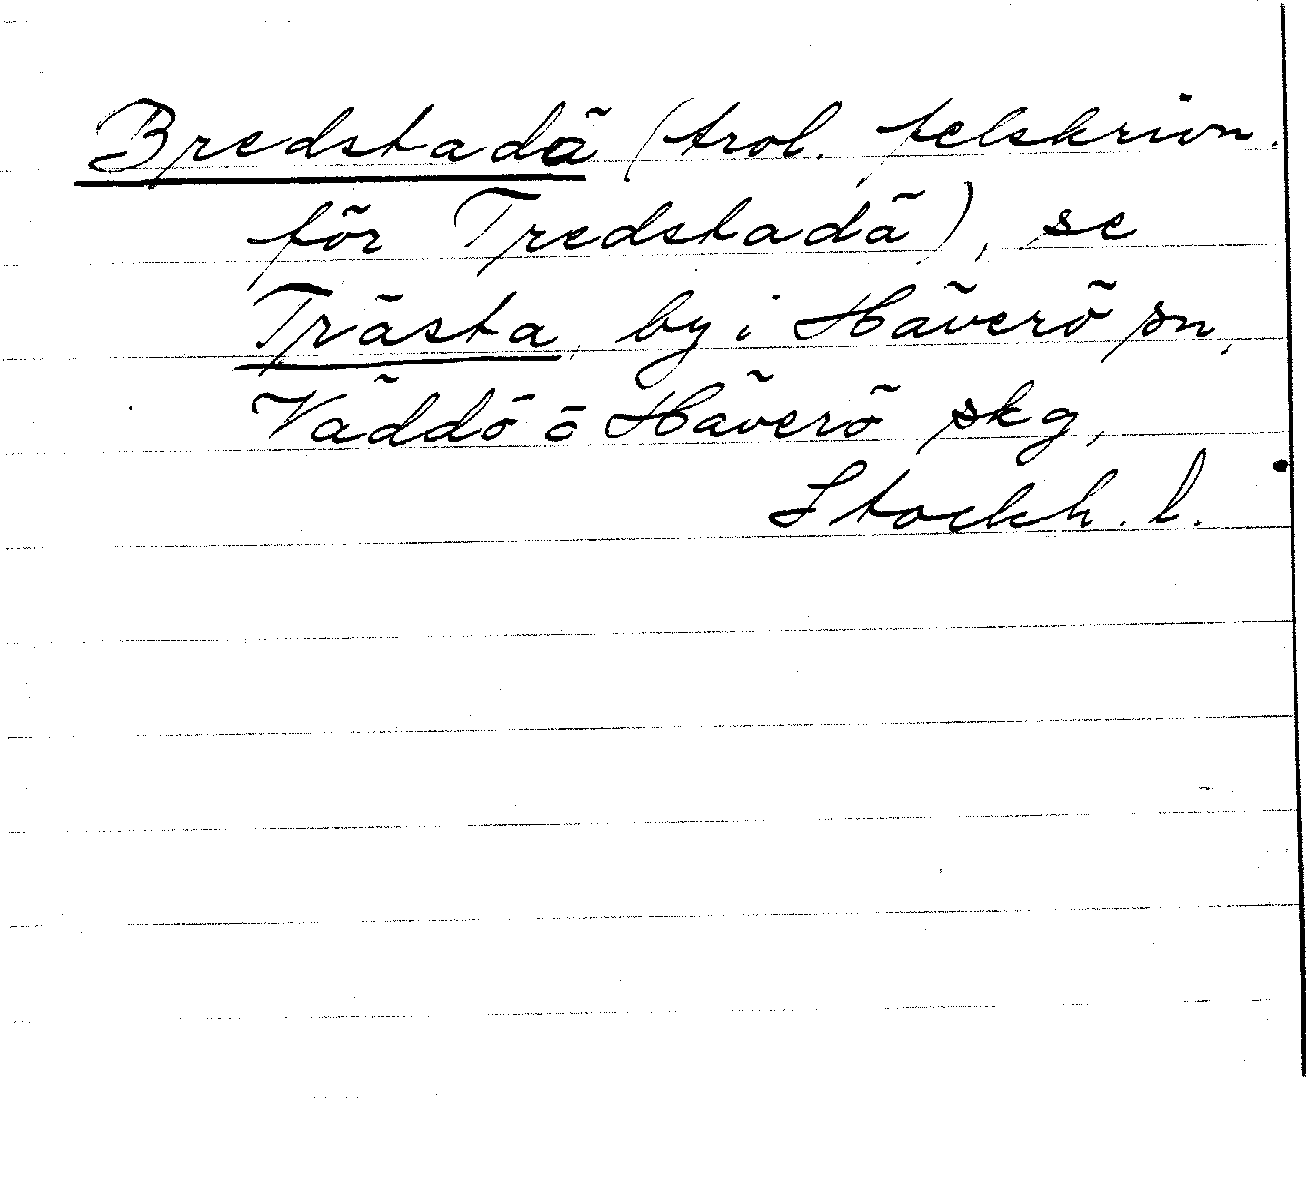 Bredstadä (trol. felskrivn.
för Tredstadä), se
Trästa, by i Häverö sn,
Väddö o Häverö skg,
Stockh. l.